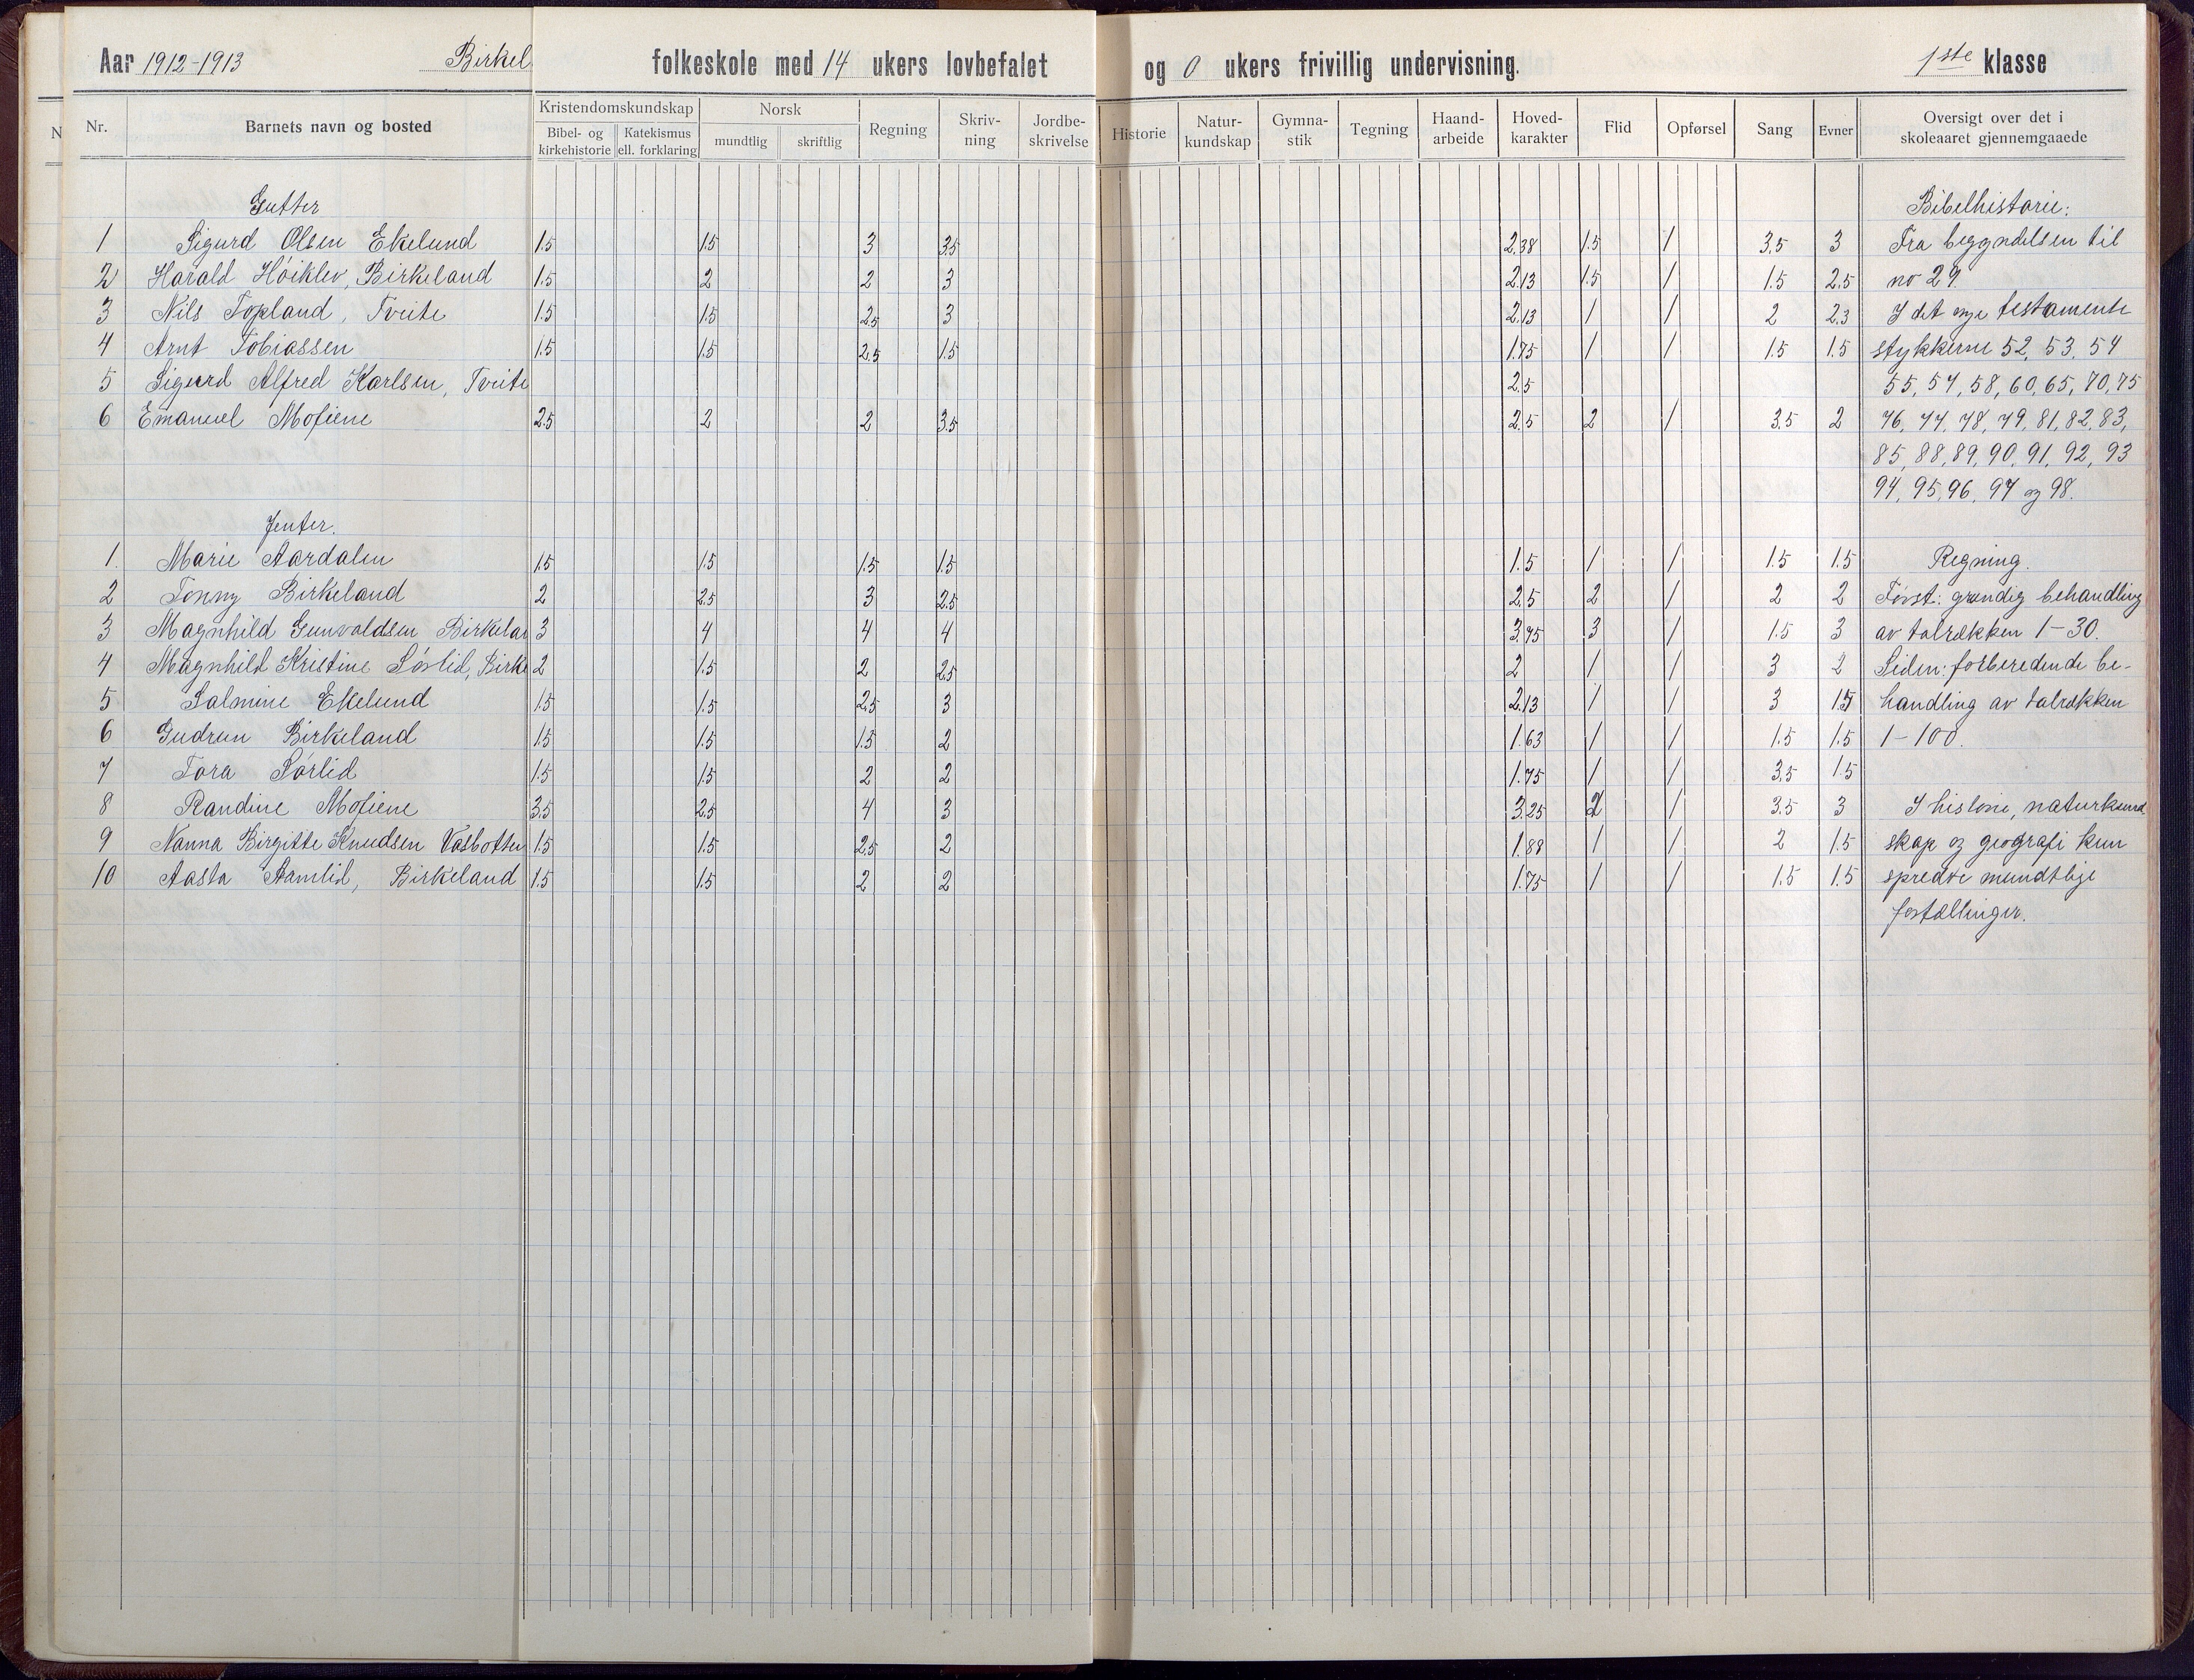 Aar 1912-1913 Birkel folkeskole med 14 ukers lovbefalet og 0 ukers frivillig undervisning. 1ste klasse
N
Nr. Barnets navn og bosted Kristendomskundskap Bibel- og kirkehistorie Katekismus ell. forklaring Norsk mundtlig skriftlig Regning Skriv-ning Jordbe-skrivelse Historie Natur-kundskap Gymna-stik Tegning Haand-arbeide Hoved-karakter Flid Opførsel Sang Evner Oversigt over det i skoleaaret gjennemgaaede
Gutter Bibelhistorie:
1 Sigurd Olsen Ekelund 1.5 1.5 3 3.5 2.38 1.5 1 3.5 3 Fra begyndelsen til
2 Harald Høiklev, Birkeland 1.5 2 2 3 2.13 1.5 1 1.5 2.5 no 29.
3 Nils Topland, Tveite 1.5 1.5 2.5 3 2.13 1 1 2 2.3 I det nye testamente
4 Arnt Tobiassen 1.5 1.5 2.5 1.5 1.75 1 1 1.5 1.5 stykkerne 52, 53, 54
5 Sigurd Alfred Karlsen, Tveite 2.5 55, 57, 58, 60, 65, 70, 75
6 Emanuel Mofiene 2.5 2 2 3.5 2.5 2 1 3.5 2 76, 77, 78, 79, 81, 82, 83,
85, 88, 89, 90, 91, 92, 93
94, 95, 96, 97 og 98.
Jenter.
1. Marie Aardalen 1.5 1.5 1.5 1.5 1.5 1 1 1.5 1.5 Regning.
2 Tonny Birkeland 2 2.5 3 2.5 2.5 2 1 2 2 Først: grundig behandling
3 Magnhild Gunvaldsen Birkelan 3 4 4 4 3.75 3 1 1.5 3 av talrækken 1-30.
4 Magnhild Kristine Sørlid, Birke 2 1.5 2 2.5 2 1 1 3 2 Siden: forberedende be-
5 Salmine Ekelund 1.5 1.5 2.5 3 2.13 1 1 3 1.5 handling av talrækken
6 Gudrun Birkeland 1.5 1.5 1.5 2 1.63 1 1 1.5 1.5 1-100.
7 Tora Sørlid 1.5 1.5 2 2 1.75 1 1 3.5 1.5
8 Randine Mofiene 3.5 2.5 4 3 3.25 2 1 3.5 3 I historie, naturkund
9 Nanna Birgitte Knudsen Vasbotten 1.5 1.5 2.5 2 1.88 1 1 2 1.5 skap og geografi kun
10 Aasta Aamlid, Birkeland 1.5 1.5 2 2 1.75 1 1 1.5 1.5 spredte mundtlige
fortællinger.